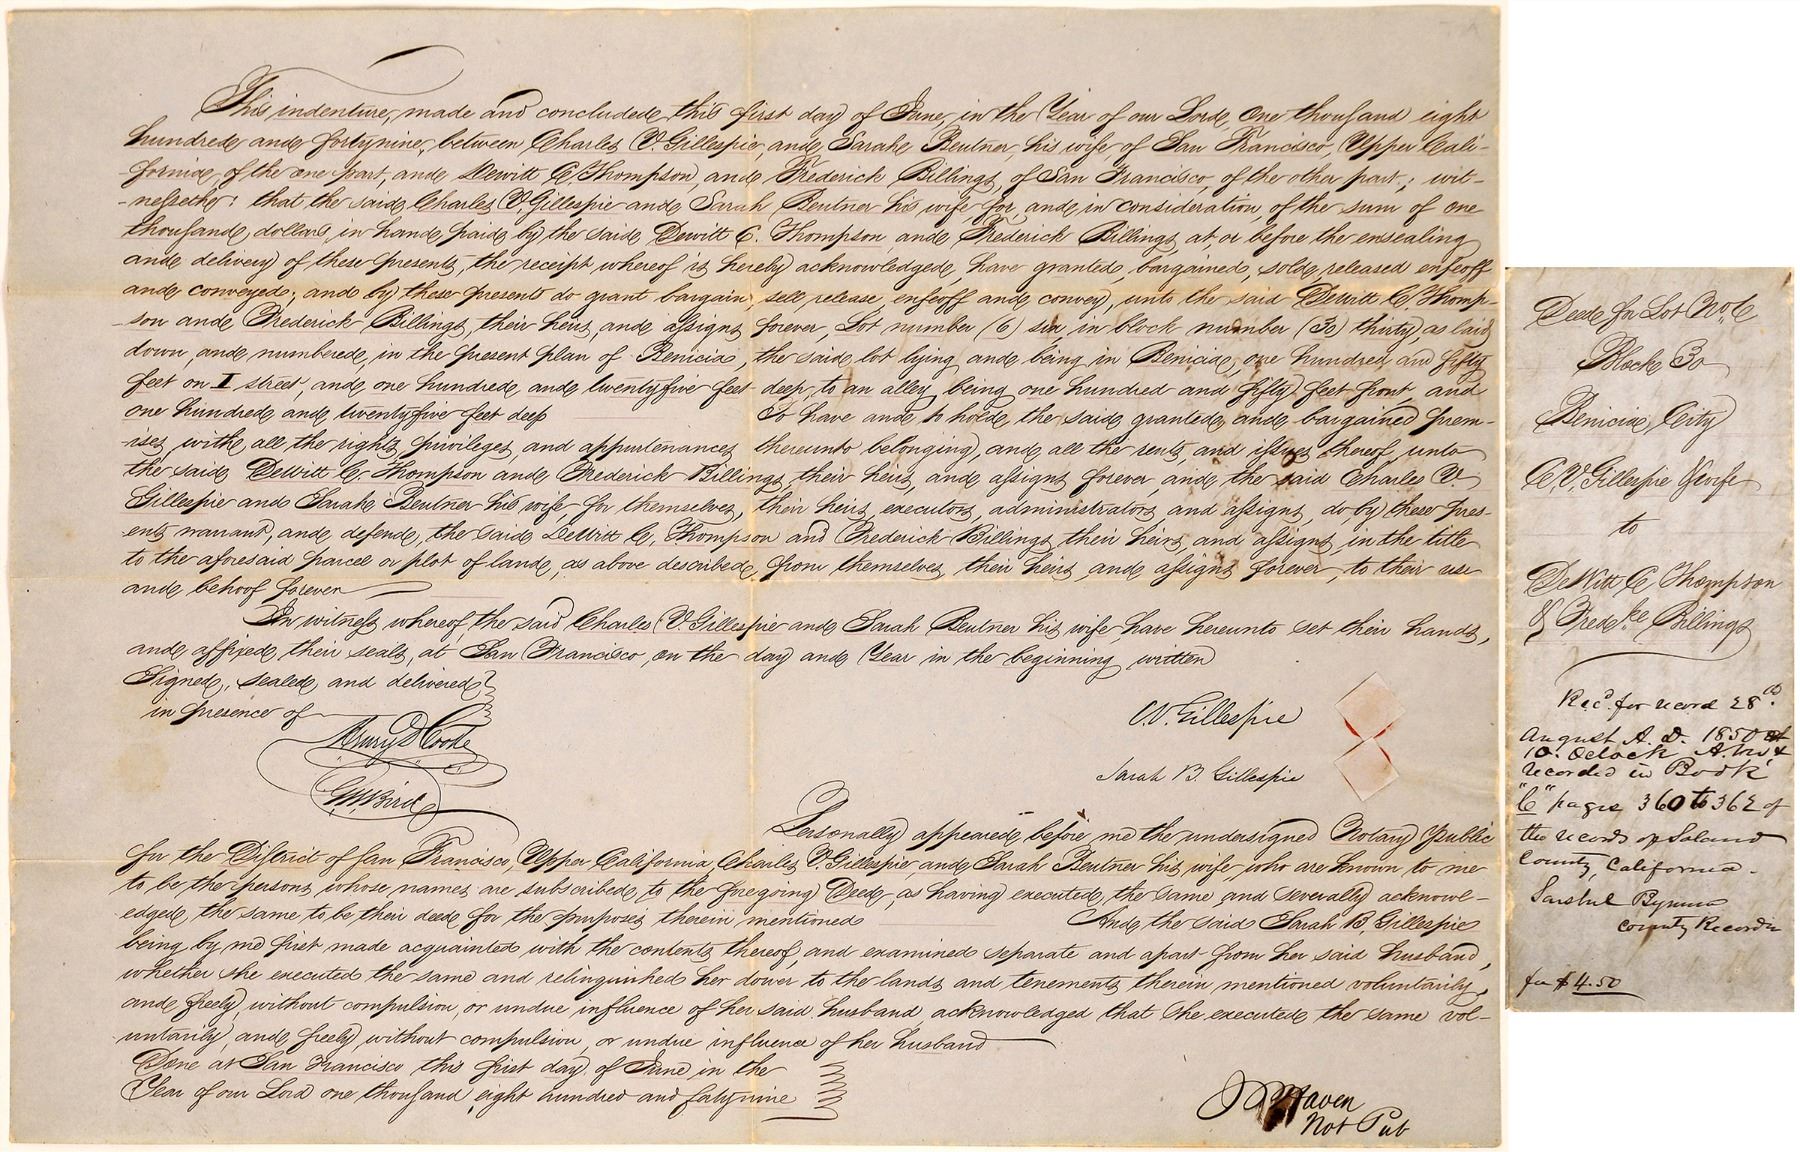 This indenture, made and concluded this first day of June, in the Year of our Lord, One thousand eight
hundred and fortynine, between Charles V. Gillespie, and, Sarah Beutner, his wife of San Francisco, Upper Cali-
-fornia, of the one part, and, Dewitt C. Thompson, and Frederick Billings, of San Francisco, of the other part; wit-
-nesseth: that the said, Charles V. Gillespie and Sarah Beutner his wife for, and, in consideration of the sum of one
thousand, dollars, in hand, paid, by the said Dewitt C. Thompson and Frederick Billings, at, or before the ensealing
and delivery of these presents, the receipt whereof is hereby acknowledged, have granted bargained, sold, released enfeoff
and conveyed; and by these presents do grant bargain, sell release enfeoff and convey, unto the said DeWitt C. Thomp-
-son and Frederick Billings, their heirs, and, assigns forever, Lot number (6) six in block number (30) thirty, as laid
down, and, numbered, in the present plan of Benicia, the said, lot lying and being in Benicia, one hundred and fifty
feet on I street, and, one hundred, and, twentyfive feet deep, to an alley, being one hundred and fifty feet front, and
one hundred and twentyfive feet deep To have and to hold, the said, granted, and bargained prem-
-ises, with, all the rights, privileges, and appurtenances thereunto belonging, and, all the rents, and issues thereof, unto
the said DeWitt C. Thompson and Frederick Billings, their heirs, and assigns forever, and, the said Charles V.
Gillespie and Sarah Beutner his wife, for themselves, their heirs, executors, administrators and assigns, do by these pres-
ents warrant, and, defend, the said DeWitt C. Thompson and Frederick Billings, their heirs, and assigns, in the title
to the aforesaid parcel or plot of land, as above described, from themselves, their heirs, and assigns forever, to their use
and behoof forever
In witness whereof, the said Charles V. Gillespie and Sarah Beutner his wife have hereunto set their hands,
and affixed, their seals, at San Francisco, on the day and Year in the beginning written
Signed, sealed, and delivered
in presence of
Henry D Cooke
G.W. Bird
C.V. Gillespie
Sarah B. Gillespie
Personally appeared, before me the undersigned Notary Public
for the District of San Francisco, Upper California, Charles V. Gillespie, and, Sarah Beutner his wife, who are known to me
to be the persons, whose names are subscribed, to the foregoing Deed, as having executed, the same and severally acknowl-
edged, the same to be their deed for the purposes therein mentioned And, the said Sarah B. Gillespie
being by me first made acquainted with the contents thereof, and examined separate and apart from her said husband,
whether she executed the same and relinquished her dower to the lands and tenements therein mentioned voluntarily,
and freely, without compulsion, or undue influence of her said husband acknowledged that she executed, the same vol-
untarily, and, freely, without compulsion, or undue influence of her husband
Done at San Francisco this first day of June in the
Year of our Lord one thousand eight hundred and fortynine
Haven
Not Pub
Deed for Lot No. 6
Block 30
Benicia City
C. V. Gillespie & wife
to
DeWitt C Thompson
& Fredke Billings
Recd. for record 28th
August A. D. 1850 at
10. Oclock A.M. &
recorded in Book
"C" pages 360 to 362 of
the records of Solano
County, California.
Bynum
County Recorder
fee $4.50